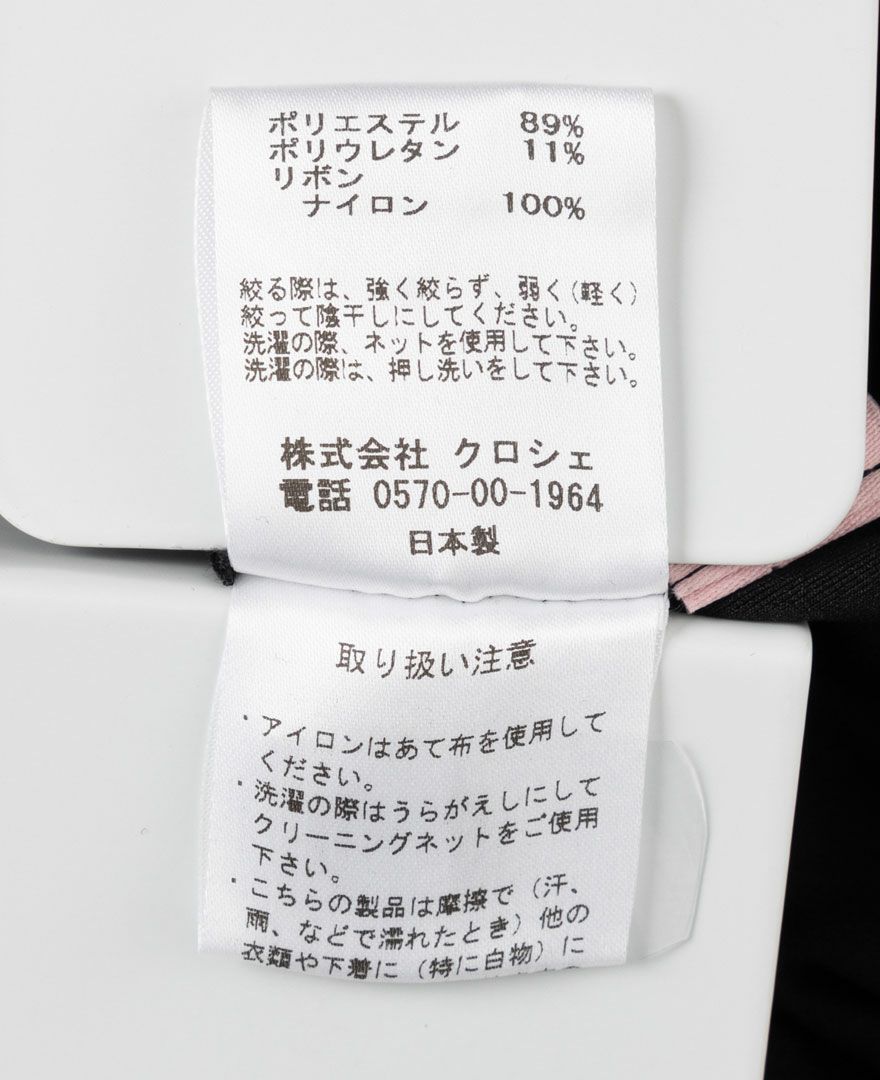 ポリエステル 89%
ポリウレタン 11%
リボン
ナイロン 100%
絞る際は、強く絞らず、弱く(軽く)
絞って陰干しにしてください。
洗濯の際、ネットを使用して下さい。
洗濯の際は、押し洗いをして下さい。
株式会社 クロシェ
電話 0570-00-1964
日本製
取り扱い注意
・アイロンはあて布を使用して
ください。
・洗濯の際はうらがえしにして
クリーニングネットをご使用
下さい。
・こちらの製品は摩擦で(汗、
雨、などで濡れたとき)他の
衣類や下着に(特に白物)に